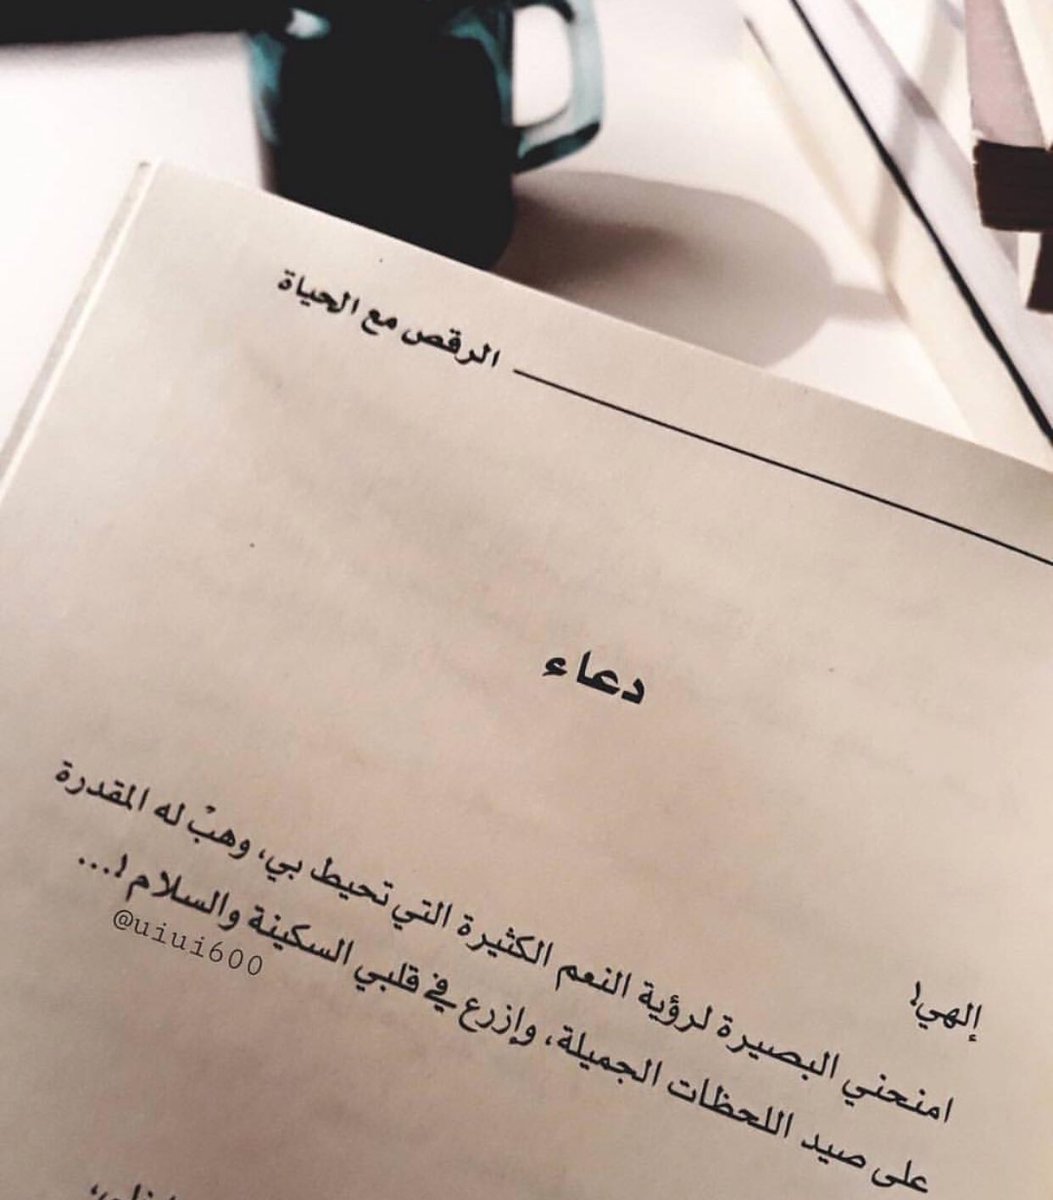 الرقص مع الحياة
دعاء
إلهي!
امنحني البصيرة لرؤية النعم الكثيرة التي تحيط بي، وهبْ له المقدرة
على صيد اللحظات الجميلة، وإزرع في قلبي السكينة والسلام !...
@uiui600